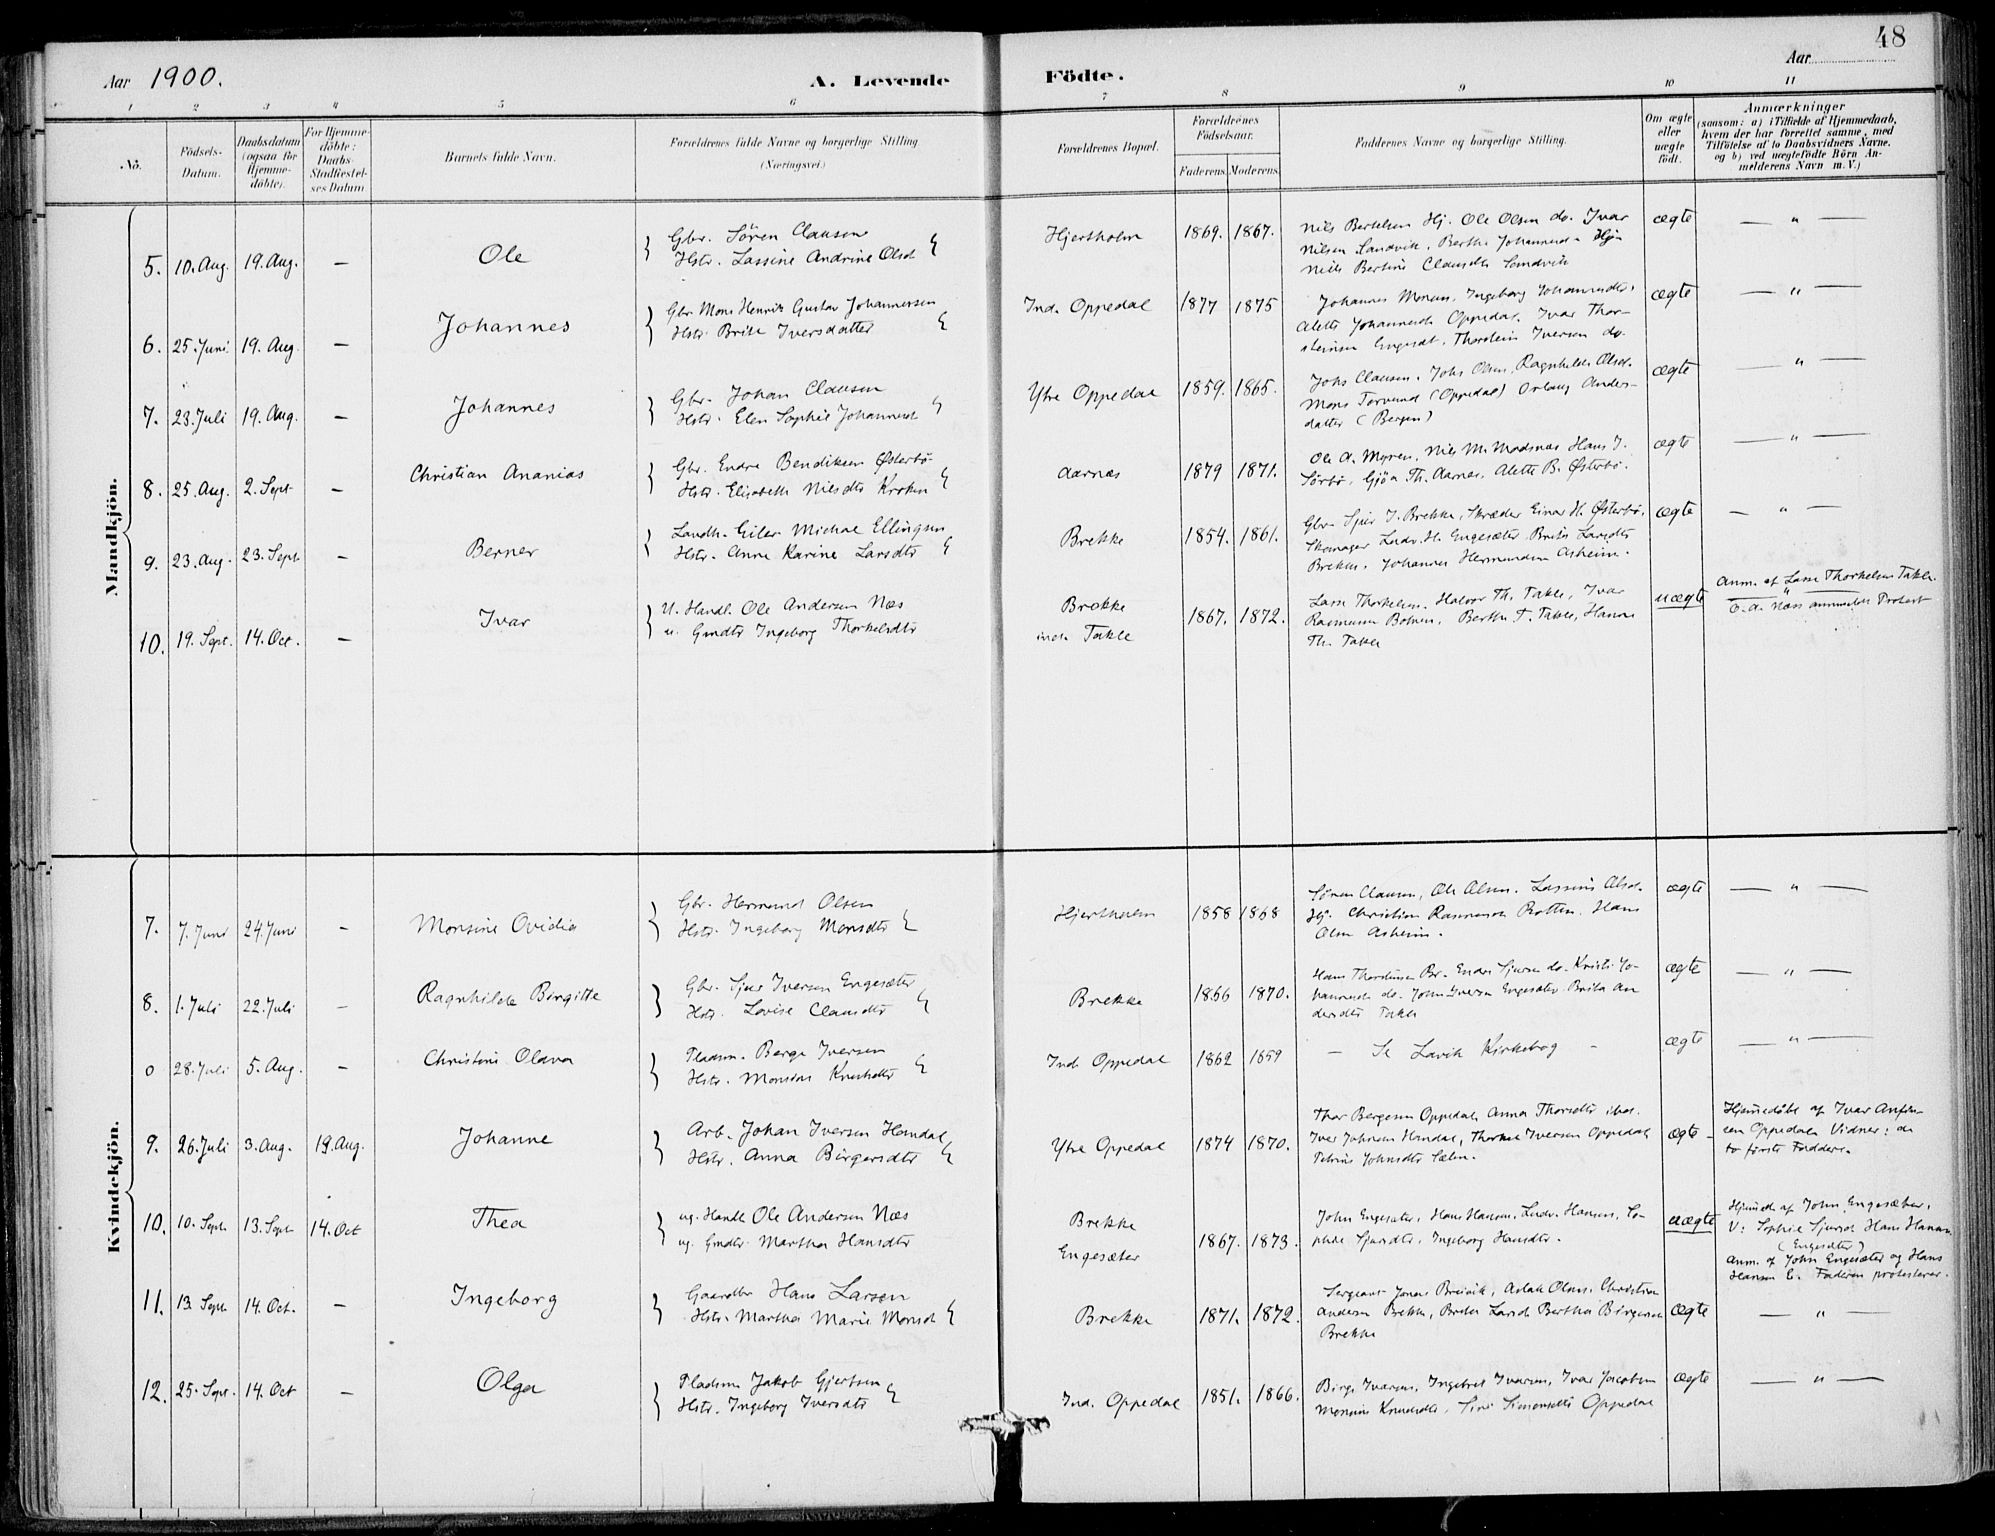 48
Aar 1900.
A. Levende Födte.
Aar
1 2 3 4 5 6 7 8 9 10 11
No.
Födsels-Datum.
Daabsdatum (ogsaa for Hjemmedöbte).
For Hjemmedöbte: Daabs-Stadfæstelses Datum
Barnets fulde Navn.
Forældrenes fulde Navne og borgerlige Stilling (Næringsvei.)
Forældrenes Bopæl.
Forældrenes Födselsaar.
Faderens. Moderens.
Faddernes Navne og borgerlige Stilling.
Om ægte eller uægte födt.
Anmærkninger
(saasom: a) i Tilfælde af Hjemmedaab,
hvem der har forrettet samme, med
Tilföielse af to Daabsvidners Navne.
og b) ved uægtefödte Börn An-
melderens Navn m. V.)
Mandkjön.
5. 10. Aug. 19. Aug. — Ole
Gbr. Sören Clausen
Hstr. Lassine Andrine Olsd
Hjertholm 1869. 1867.
Nils Bertelsen Hj. Ole Olsen do. Ivar
Nilsen Sandvik, Berthe Johannesd.
Nils Bertine Clausdtr Sandvik
ægte — " —
6. 25. Juni 19. Aug. — Johannes
Gbr. Mons Henrik Gustav Johannessen
Hstr. Brite Iversdatter
Ind. Oppedal 1877 1875
Johannes Monsen, Ingeborg Johannesdtr,
Alette Johannesd. Oppedal, Ivar Thor-
steinsen Engesæt. Thorstein Iversen do.
ægte — " —
7. 23. Juli 19. Aug. — Johannes
Gbr. Johan Clausen
Hstr. Elen Sophie Johannesd
Ytre Oppedal 1859. 1865.
Johs Clausen. Johs Olsen, Ragnhilde Olsd.
Mons Torvund (Oppedal) Anders-
datter (Bergen)
ægte "
8. 25. Aug. 2. Sept — Christian Ananias
Gbr. Endre Bendiksen Østerbö
Hstr. Elisabeth Nilsdtr Kroken
Aarnæs 1879 1871.
Ole A. Myren, Nils M. Madsnæs Hans J.
Sörbö, Gjöa Th. Aarnæs, Alette B. Østerbö.
ægte — " —
9. 23. Aug. 23. Sept — Berner
Landh. Eiler Michal Ellingsen
Hstr. Anne Karine Larsdtr
Brekke 1854. 1861.
Gbr. Sjur J. Brekke, Skræder Einar H. Østerbö,
Skomager Ludv. H. Engesæter Brite Larsdtr
Brekke. Johannes Hermundsen Asheim.
ægte — " —
10. 19. Sept. 14. Oct. — Ivar
U. Handl. Ole Andersen Næs
u. Gmdtr Ingeborg Thorkelsdtr
Brekke
ind. Takle
1867. 1872.
Lasse Thorkelsen. Halvor Th. Takle, Ivar
Rasmussen Botnen, Berthe T. Takle, Hanna
Th. Takle
uægte
Anm. af Lasse Thorkelsen Takle.
O. A. Næss anmeldes Protest
Kvindekjön.
7. 7. Juni 24. Juni — Monsine Ovidia
Gbr. Hermund Olsen
Hstr. Ingeborg Monsdtr
Hjertholm 1858 1868
Sören Clausen, Ole Olsen. Lassine Olsd.
Hj. Christian Rasmussen Botten. Hans
Olsen Asheim.
ægte — " —
8. 1. Juli 22. Juli — Ragnhilde Birgitte
Gbr. Sjur Iversen Engesæter
Hstr. Lovise Clausdtr
Brekke 1866 1870.
Hans Thordensen Br. Endre Sjursen do. Kristi Jo-
hannesd. do. John Iversen Engesæter. Brita An
dersdtr Takle
ægte — " —
0 28. Juli 5. Aug. — Christine Olava
Pladsm. Berge Iversen
Hstr. Monsine Knudsdtr
Ind. Oppedal 1862 1859
— Se Lavik Kirkebog —
ægte — " —
9. 26. Juli 3. Aug. 19. Aug. Johanne
Arb. Johan Iversen Høndal
Hstr. Anna Birgersdtr
Ytre Oppedal 1874 1870.
Thor Bergesen Oppedal Anna Thorsdtr ibid.
Iver Johnsen Høndal, Thorkel Iversen Oppedal
Petrine Johnsdtr
ægte
Hjemedöbt af Ivar Anfin-
sen Oppedal. Vidner: de
to förste Faddere.
10. 10. Sept. 13. Sept 14. Oct Thea
ug. Handl. Ole Andersen Næs
ug. Gmdtr. Martha Hansdtr
Brekke
Engesæter
1867. 1873.
John Engesæter, Hans Hansen, Ludv. Hansen, So-
phie Sjursdtr, Ingeborg Hansdtr.
uægte
Hjmd af John Engesæter,
V: Sophie Sjursd. Hans Hansen
(Engesæter)
Anm. af John Engesæter og Hans
Hansen E. Faderen protesterer.
11. 13. Sept 14. Oct. — Ingeborg
Gaardbr Hans Larsen
Hstr. Martha Marie Monsd
Brekke 1871. 1872.
Sergeant Jonas Breivik, Aslak Olsen, Christian
Andersen Brekke, Brita Larsd. Bertha Birgersen
Brekke
ægte — " —
12. 25. Sept. 14. Oct — Olga
Pladsm Jakob Gjertsen
Hstr. Ingeborg Iversdtr
Ind. Oppedal 1851. 1866.
Birge Ivarsen, Ingebret Ivarsen, Ivar Jacobsen
Monsine Knudsdtr, Sine Simonsdtr Oppedal
ægte — " —